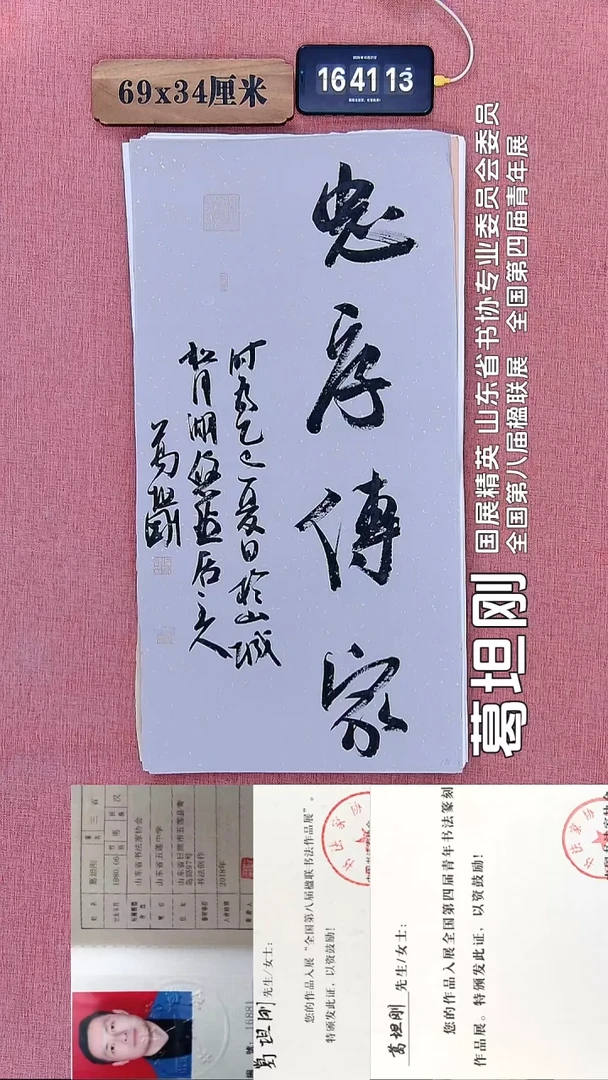 69x34厘米
16 41 13
忠厚傳家
时为乙巳夏日於山城
松月湖悠然居主人
葛坦刚
葛坦刚
国展精英 山东省书协专业委员会委员
全国第八届楹联展 全国第四届青年展
姓名 葛坦刚
山东省书法家协会
山东省五莲中学
书法创作
2018年
葛坦刚 先生/女士:
您的作品入展“全国第八届楹联书法作品展”。
特颁发此证,以资鼓励!
葛坦刚 先生/女士:
您的作品入展全国第四届青年书法篆刻
作品展。特颁发此证,以资鼓励!